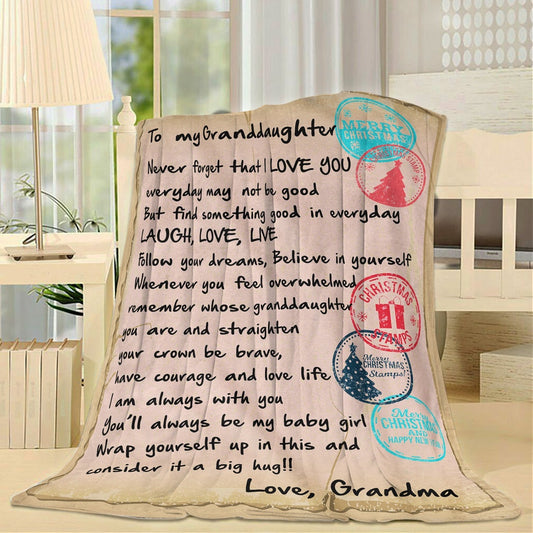 To my Granddaughter
Never forget that I LOVE YOU
everyday may not be good
But find something good in everyday
LAUGH, LOVE, LIVE
Follow your dreams, Believe in yourself
Whenever you feel overwhelmed
remember whose granddaughter
you are and straighten
your crown be brave,
have courage and love life
I am always with you
You'll always be my baby girl
Wrap yourself up in this and
consider it a big hug!!
Love, Grandma
MERRY
CHRISTMAS
STAMP
CHRISTMAS
STAMPS
Merry
CHRISTMAS
Stamps!
Merry
CHRISTMAS
AND
HAPPY NEW